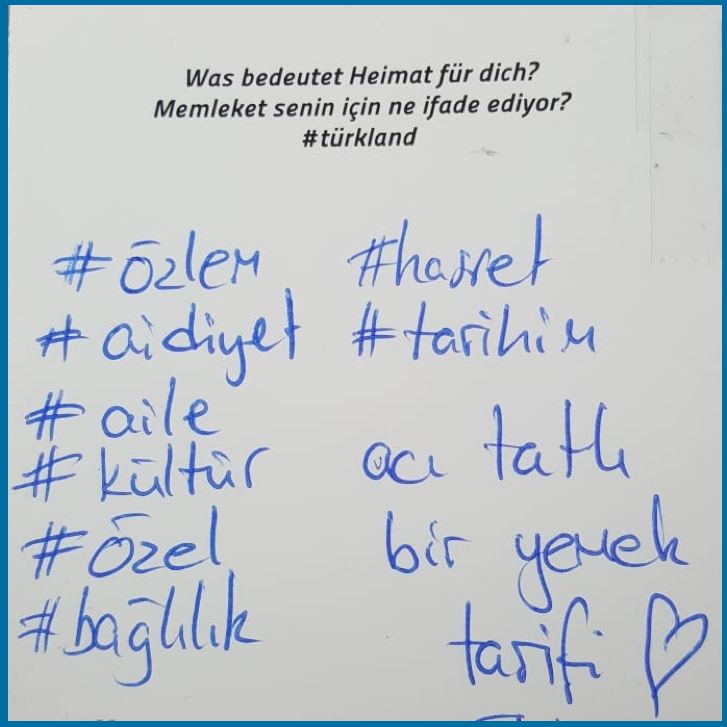 Was bedeutet Heimat für dich?
Memleket senin için ne ifade ediyor?
#türkland
#özlem
#aidiyet
#aile
#kültür
#özel
#bağlılık
#hasret
#tarihim
acı tatlı
bir yemek
tarifi ♡